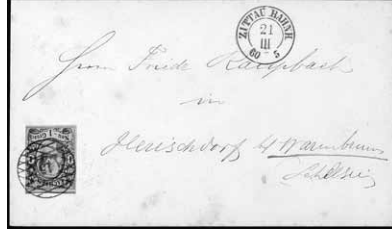 ZITTAU BAHNH.
21
III
60 * 5
Herrn Friedr.
in
Herischdorf b/ Warmbrunn
Schlesien